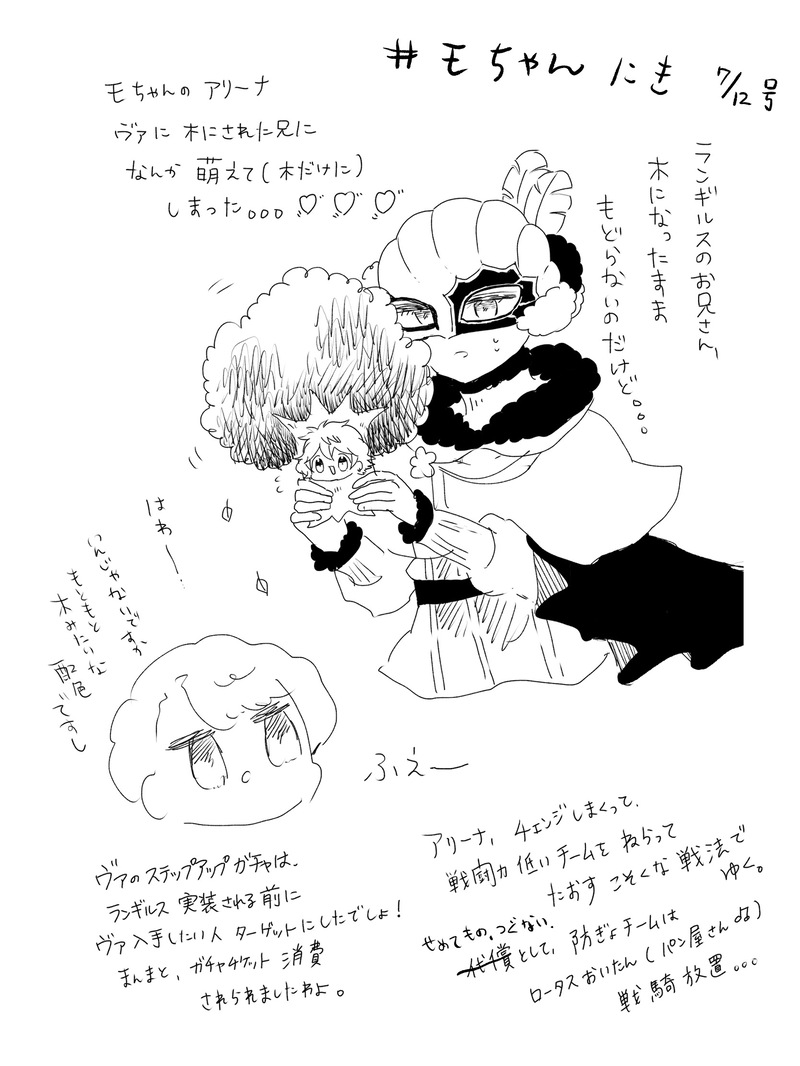 #モちゃんにき 7/12号
モちゃんの アリーナ
ヴァに 木にされた兄に
なんか 萌えて(木だけに)
しまった。。。♡♡♡
ランギルスのお兄さん、
木になったまま
もどらないのだけど。。。
はわー!
いんじゃないですか
もともと
木みたいな
配色ですし
ふぇー
ヴァのステップアップガチャは、
ランギルス 実装される前に
ヴァ入手したい人 ターゲットにしたでしょ!
まんまと、ガチャチケット 消費
されられましたわよ。
アリーナ、チェンジしまくって、
戦闘力 低いチームを ねらって
たおす こそくな 戦法で
ゆく。
せめてもの、つぐない
代償として、防ぎょチームは
ロータスおいたん(パン屋さんの)
戦騎放置。。。